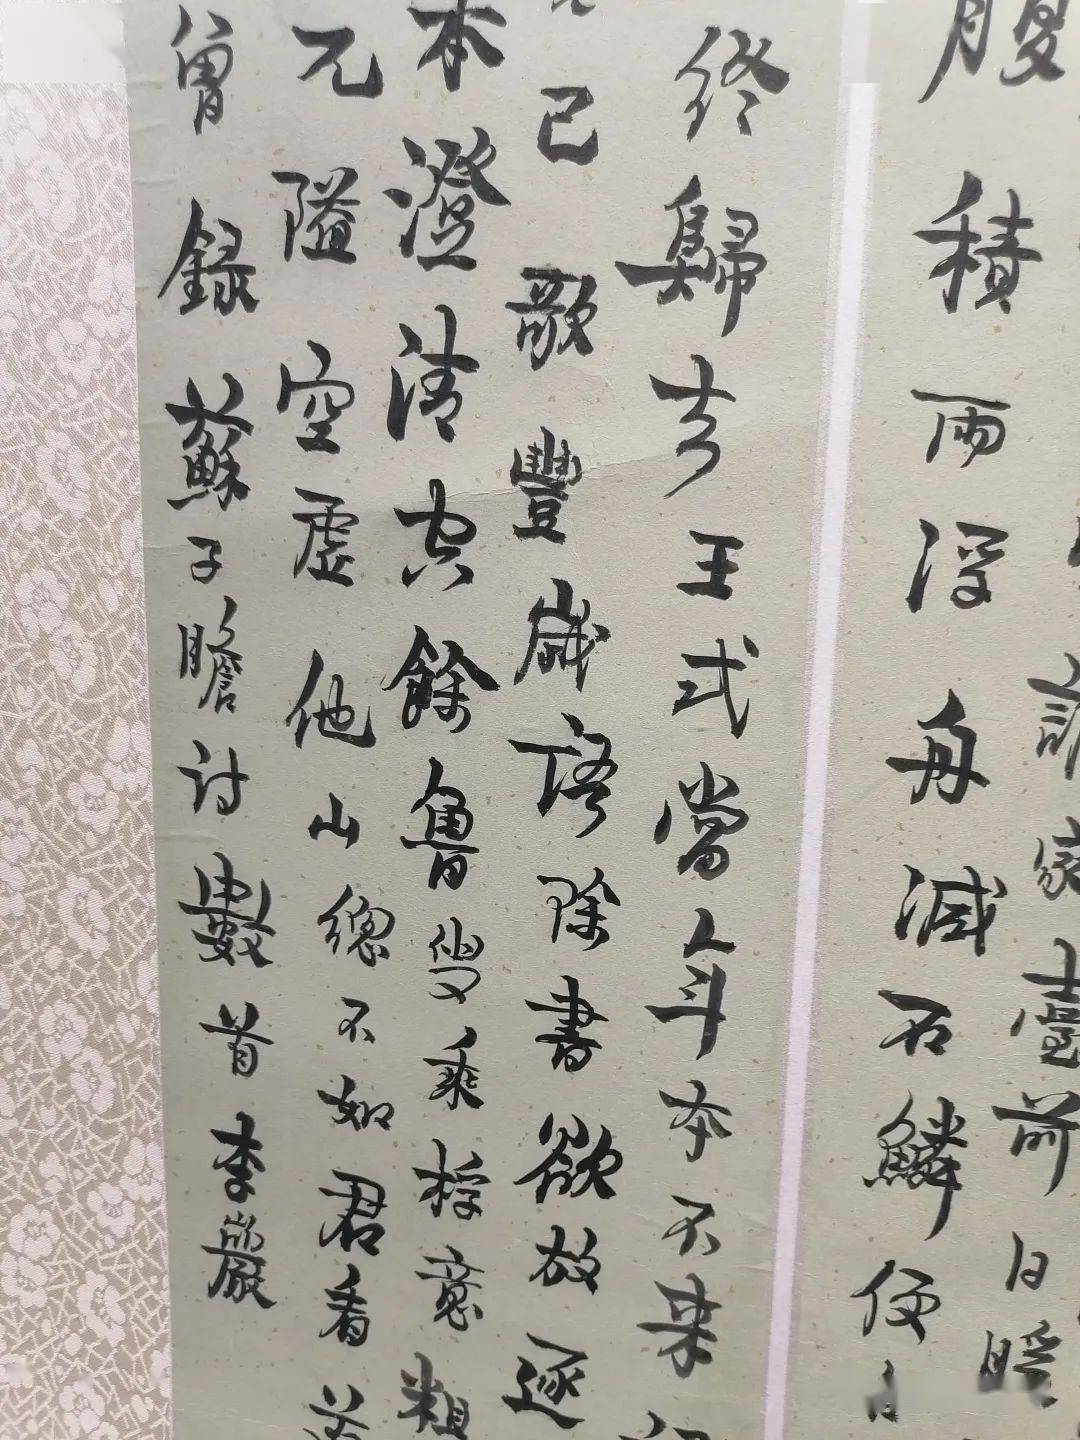 家臺前日暖
腹積雨浮舟減石鱗便
終歸去王式當年本不來
已歌豐歲語除書欲放逐
本澄清空餘魯叟乘桴意粗
兀隘空虛他山總不如君看
曾録蘇子瞻詩數首李巖